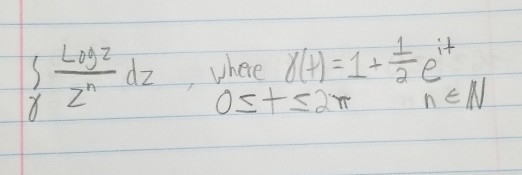 ∫_γ Log z / z^n dz , where γ(t) = 1 + 1/2 e^{it}
0 ≤ t ≤ 2π n ∈ ℕ